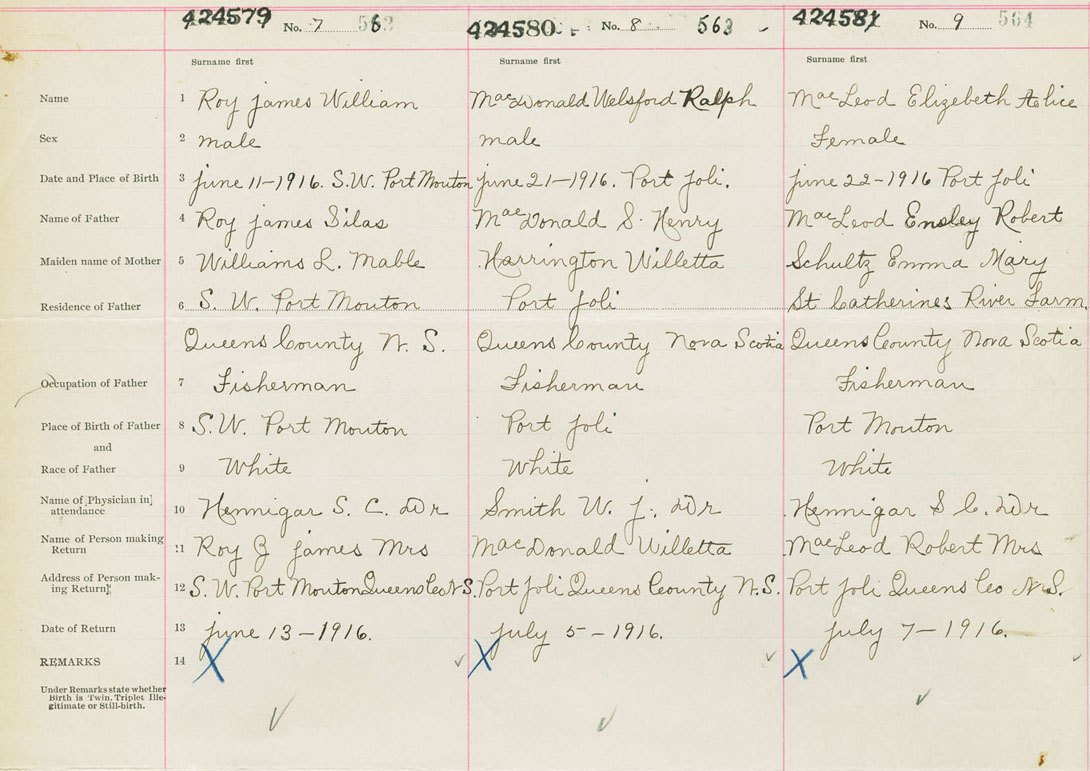 424579 No. 7 424580 No. 8 563 424581 No. 9 564
Surname first Surname first Surname first
Name 1 Roy James William MacDonald Welsford Ralph MacLeod Elizebeth Alice
Sex 2 male male Female
Date and Place of Birth 3 June 11-1916. S.W. Port Mouton June 21-1916. Port Joli. June 22-1916 Port Joli
Name of Father 4 Roy James Silas MacDonald S. Henry MacLeod Ensley Robert
Maiden name of Mother 5 Williams L. Mable Harrington Willetta Schultz Emma Mary
Residence of Father 6 S. W. Port Mouton Port Joli St Catherines River Farm.
Queens County N. S. Queens County Nova Scotia Queens County Nova Scotia
Occupation of Father 7 Fisherman Fisherman Fisherman
Place of Birth of Father 8 S.W. Port Mouton Port Joli Port Mouton
and
Race of Father 9 White White White
Name of Physician in
attendance 10 Hennigar S. C. Dr Smith W. J. Dr Hennigar S C. Dr
Name of Person making
Return 11 Roy James Mrs MacDonald Willetta MacLeod Robert Mrs
Address of Person mak-
ing Return 12 S. W. Port Mouton Queens Co N.S. Port Joli Queens County N.S. Port Joli Queens Co N.S.
Date of Return 13 June 13-1916. July 5-1916. July 7-1916.
REMARKS 14 X X X
Under Remarks state whether
Birth is Twin. Triplet Ille-
gitimate or Still-birth.